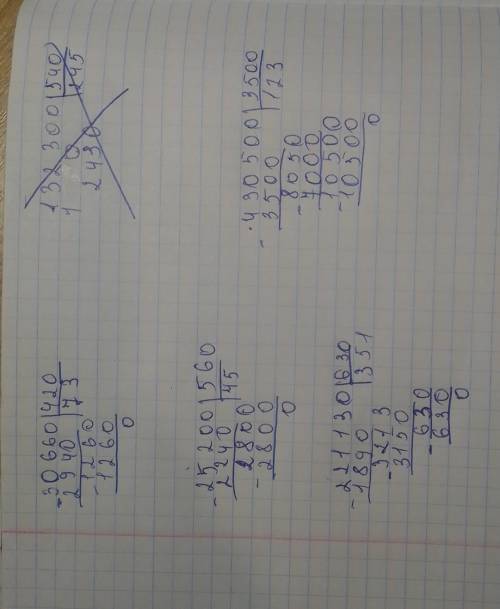 -30660|420
2940|73
-1260
1260
0
132300|540
245
2430
-25200|560
2240|45
-2800
2800
0
-430500|3500
3500|123
-8050
7000
-10500
10500
0
-221130|630
1890|351
-3213
3150
-630
630
0